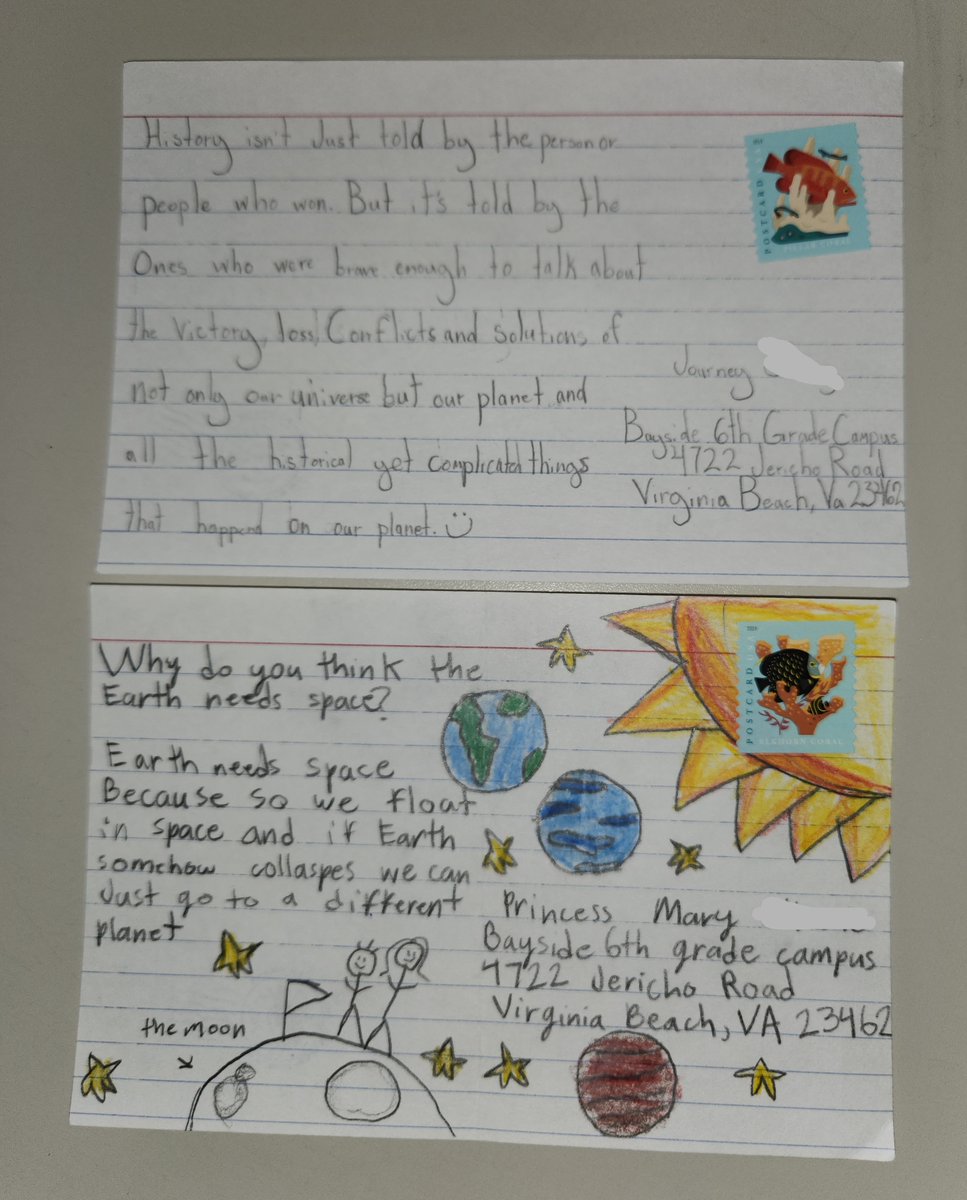 History isn't Just told by the person or
people who won. But it's told by the
Ones who were brave enough to talk about
the Victory, loss, Conflicts and Solutions of
not only our universe but our planet and
all the historical yet complicated things
that happend on our planet.
POSTCARD
PILLAR CORAL
Journey
Bayside 6th Grade Campus
4722 Jericho Road
Virginia Beach, Va 23462
Why do you think the
Earth needs space?
Earth needs space
Because so we float
in space and if Earth
somehow collaspes we can
Just go to a different
planet
the moon
POSTCARD USA
ELKHORN CORAL
Princess Mary
Bayside 6th grade campus
4722 Jericho Road
Virginia Beach, VA 23462